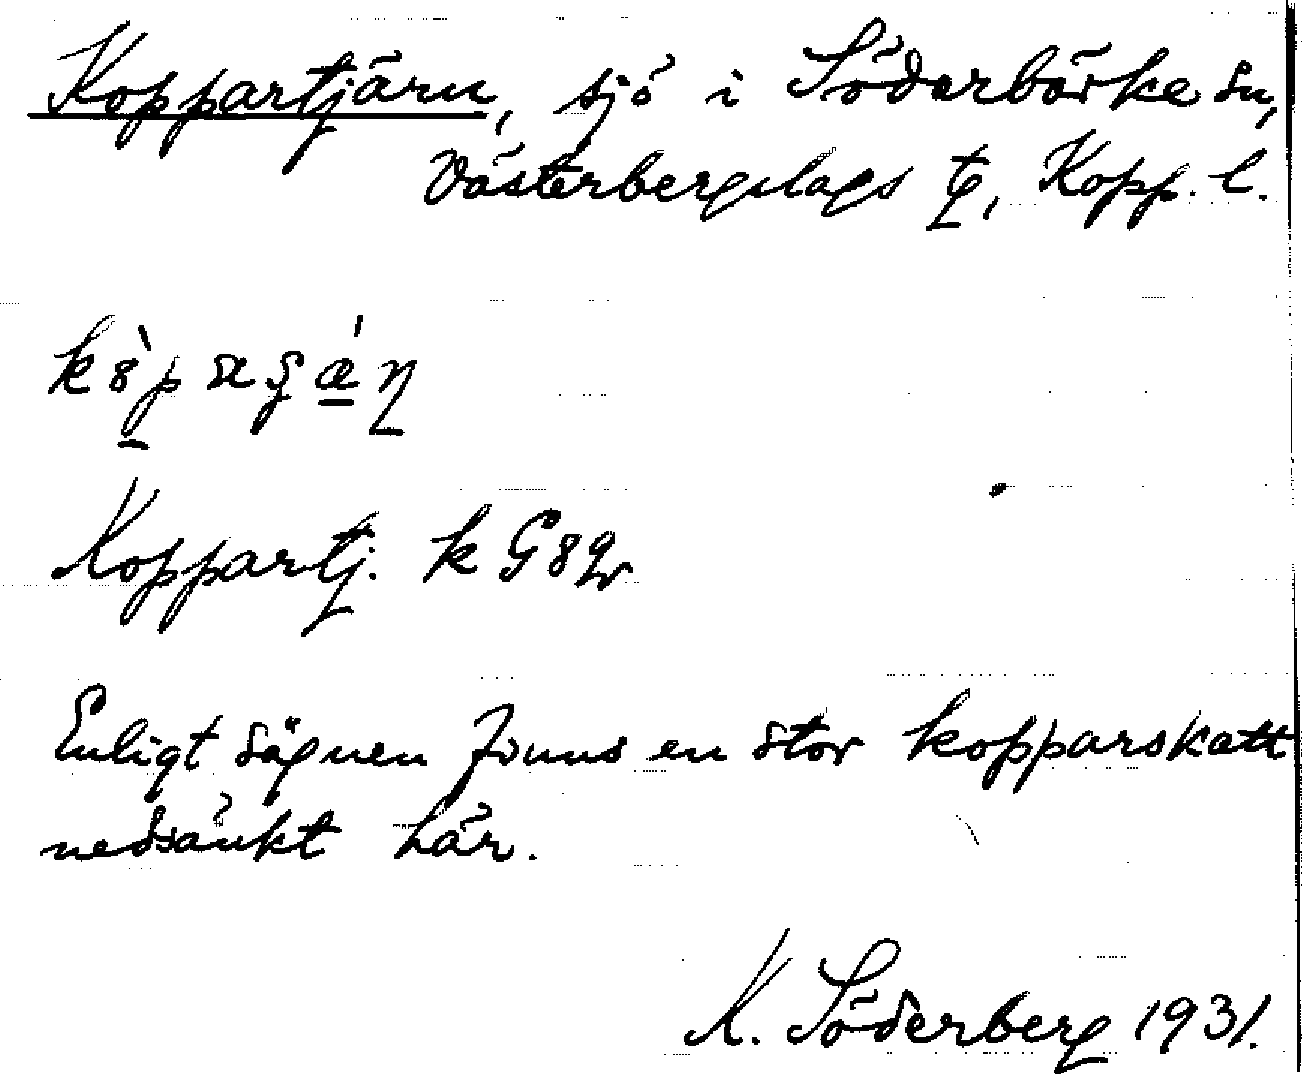 Koppartjärn, sjö i Söderbärke sn,
Västerbergslags tg, Kopp. l.
Koppartj. k G8qv
Enligt sägnen finns en stor kopparskatt
nedsänkt här.
K. Söderberg 1931.